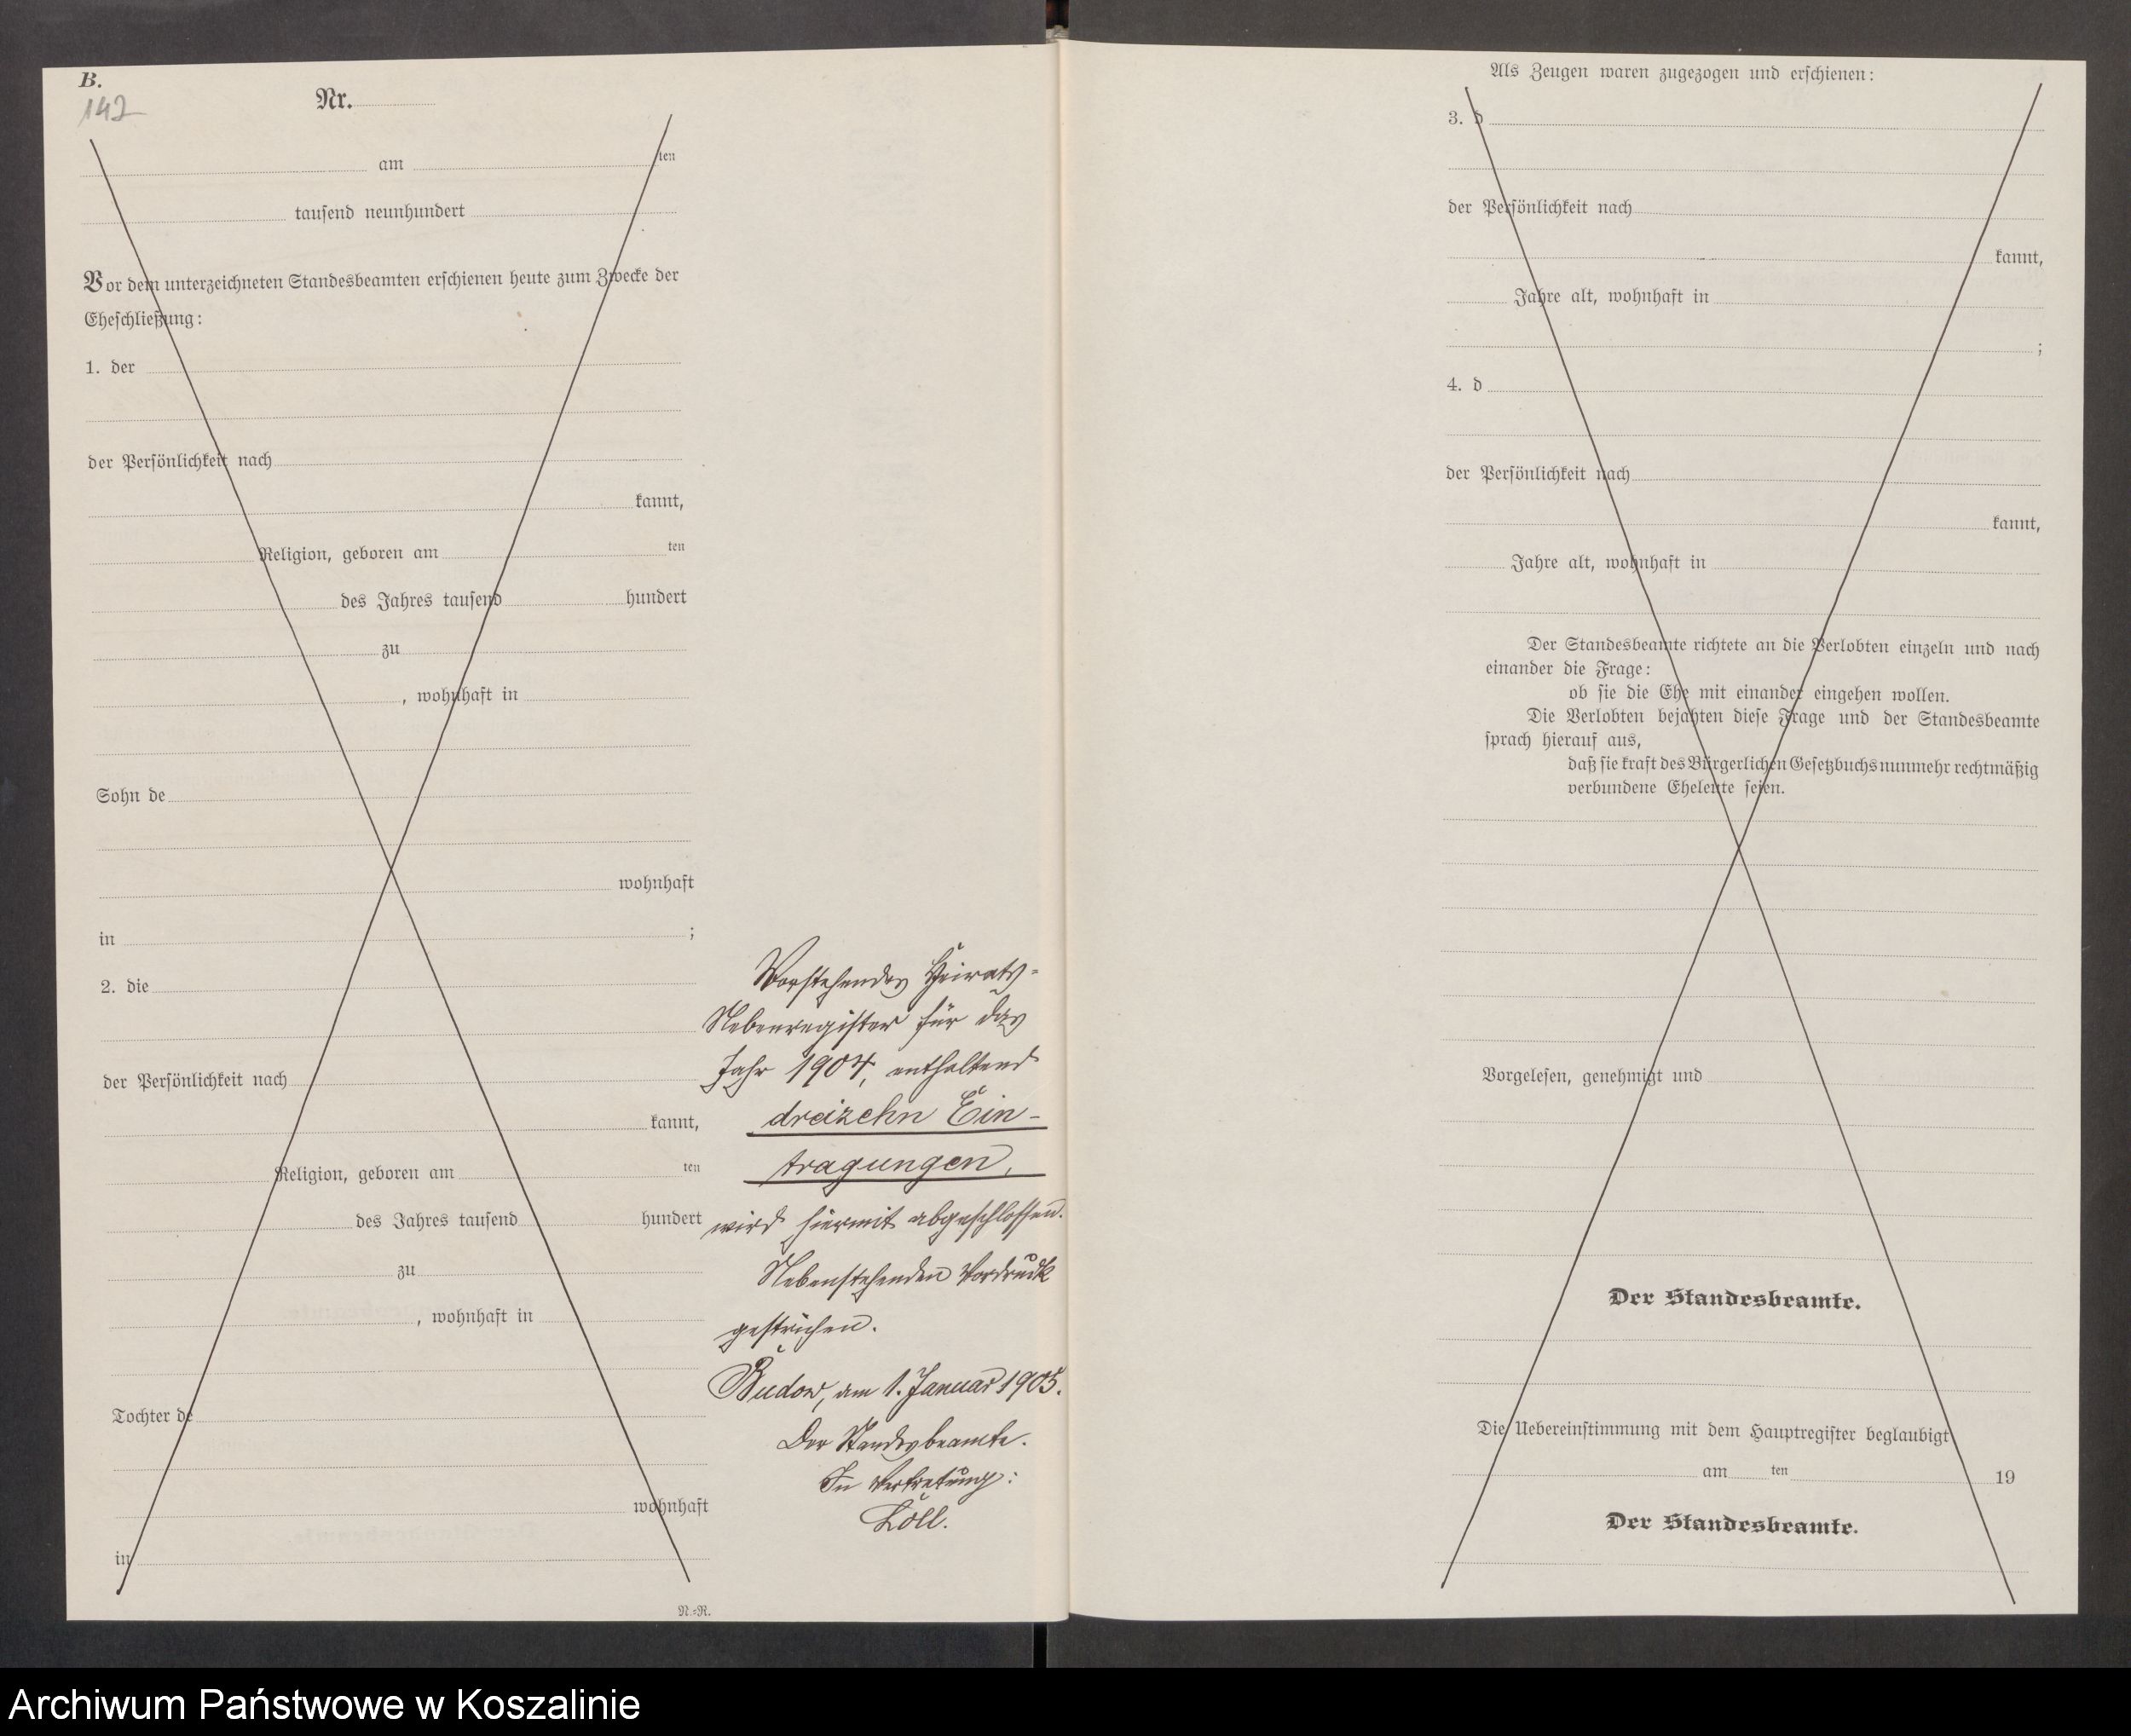 B.
142
Nr.
am ten
tausend neunhundert
Vor dem unterzeichneten Standesbeamten erschienen heute zum Zwecke der
Eheschließung:
1. der
der Persönlichkeit nach
kannt,
Religion, geboren am ten
des Jahres tausend hundert
zu
, wohnhaft in
Sohn de
wohnhaft
in ;
2. die
der Persönlichkeit nach
kannt,
Religion, geboren am ten
des Jahres tausend hundert
zu
, wohnhaft in
Tochter de
wohnhaft
in
N.-R.
Vorstehendes Heirats-
Nebenregister für das
Jahr 1904, enthaltend
dreizehn Ein-
tragungen,
wird hiermit abgeschlossen.
Nebenstehenden Vordruck
gestrichen.
Budow, am 1. Januar 1905.
Der Standesbeamte.
In Vertretung:
Köll.
Als Zeugen waren zugezogen und erschienen:
3. d
der Persönlichkeit nach
kannt,
Jahre alt, wohnhaft in
;
4. d
der Persönlichkeit nach
kannt,
Jahre alt, wohnhaft in
Der Standesbeamte richtete an die Verlobten einzeln und nach
einander die Frage:
ob sie die Ehe mit einander eingehen wollen.
Die Verlobten bejahten diese Frage und der Standesbeamte
sprach hierauf aus,
daß sie kraft des Bürgerlichen Gesetzbuchs nunmehr rechtmäßig
verbundene Eheleute seien.
Vorgelesen, genehmigt und
Der Standesbeamte.
Die Uebereinstimmung mit dem Hauptregister beglaubigt
am ten 19
Der Standesbeamte.
Archiwum Państwowe w Koszalinie